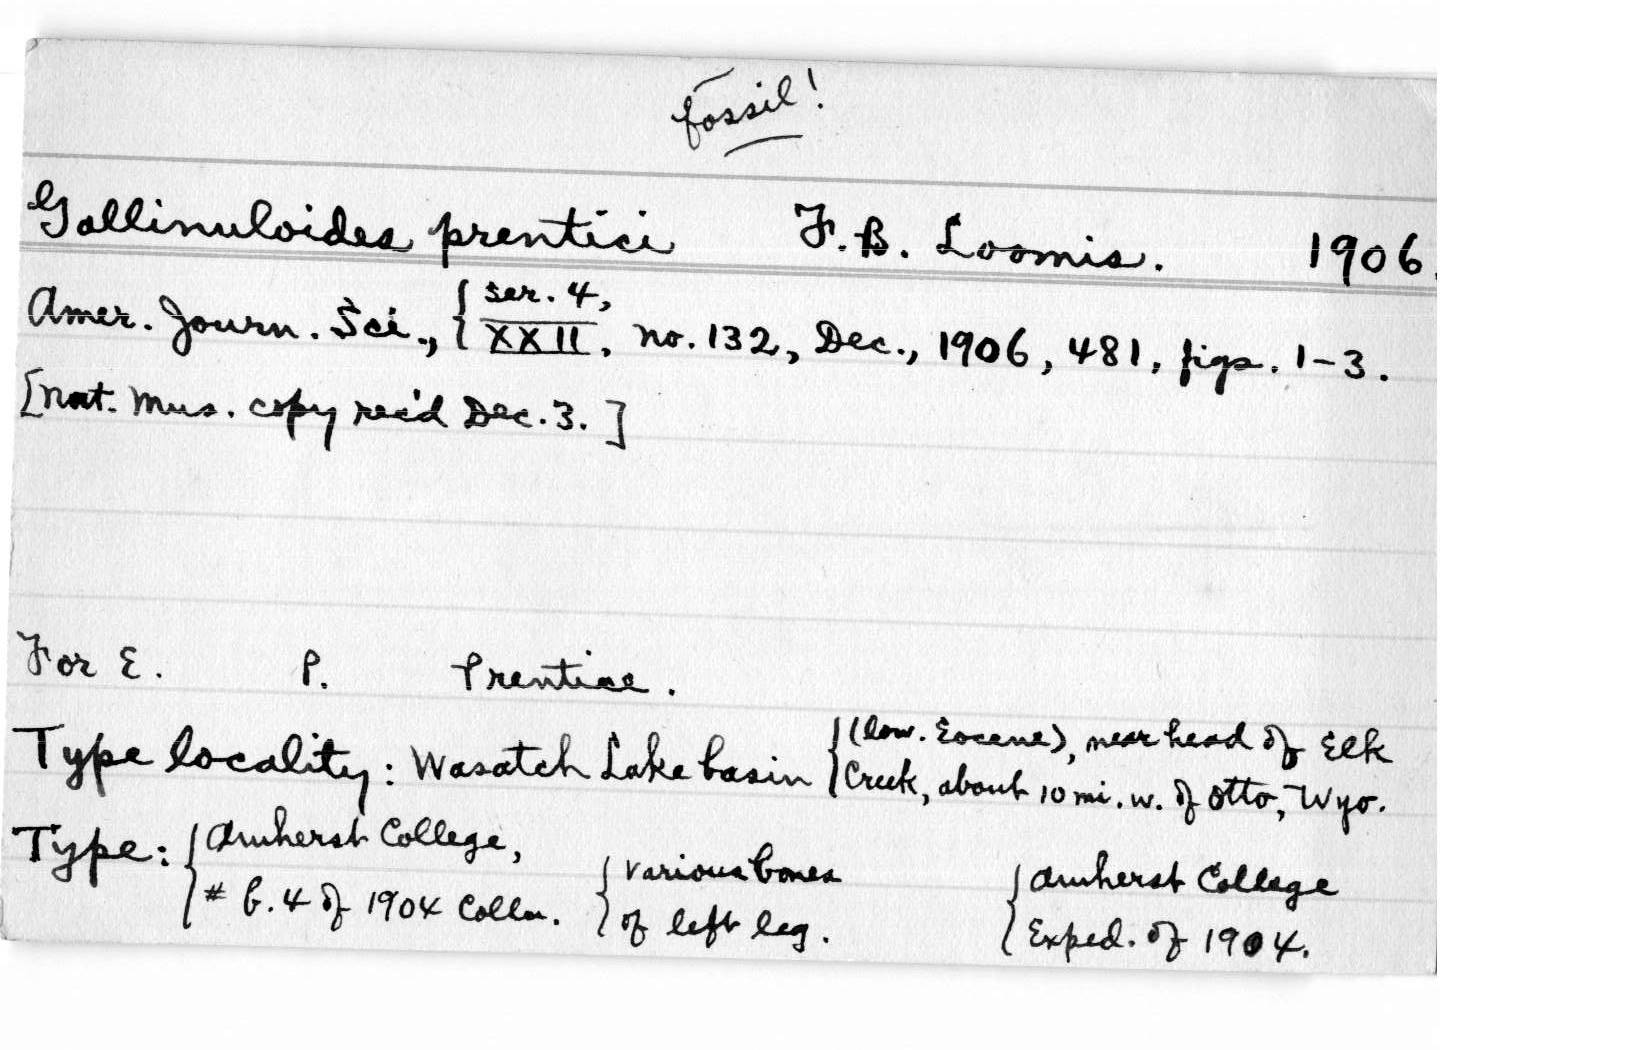 fossil!
Gallinuloides prentici F. B. Loomis. 1906.
Amer. Journ. Sci., { ser. 4, XXII, no. 132, Dec., 1906, 481, figs. 1-3.
[Nat. Mus. copy rec'd Dec. 3.]
For E. P. Prentice.
Type locality: Wasatch Lake basin { (low. Eocene), near head of Elk
Creek, about 10 mi. w. of Otto, Wyo.
Type: { Amherst College, { various bones { Amherst College
# b. 4 of 1904 Colln. of left leg. Exped. of 1904.